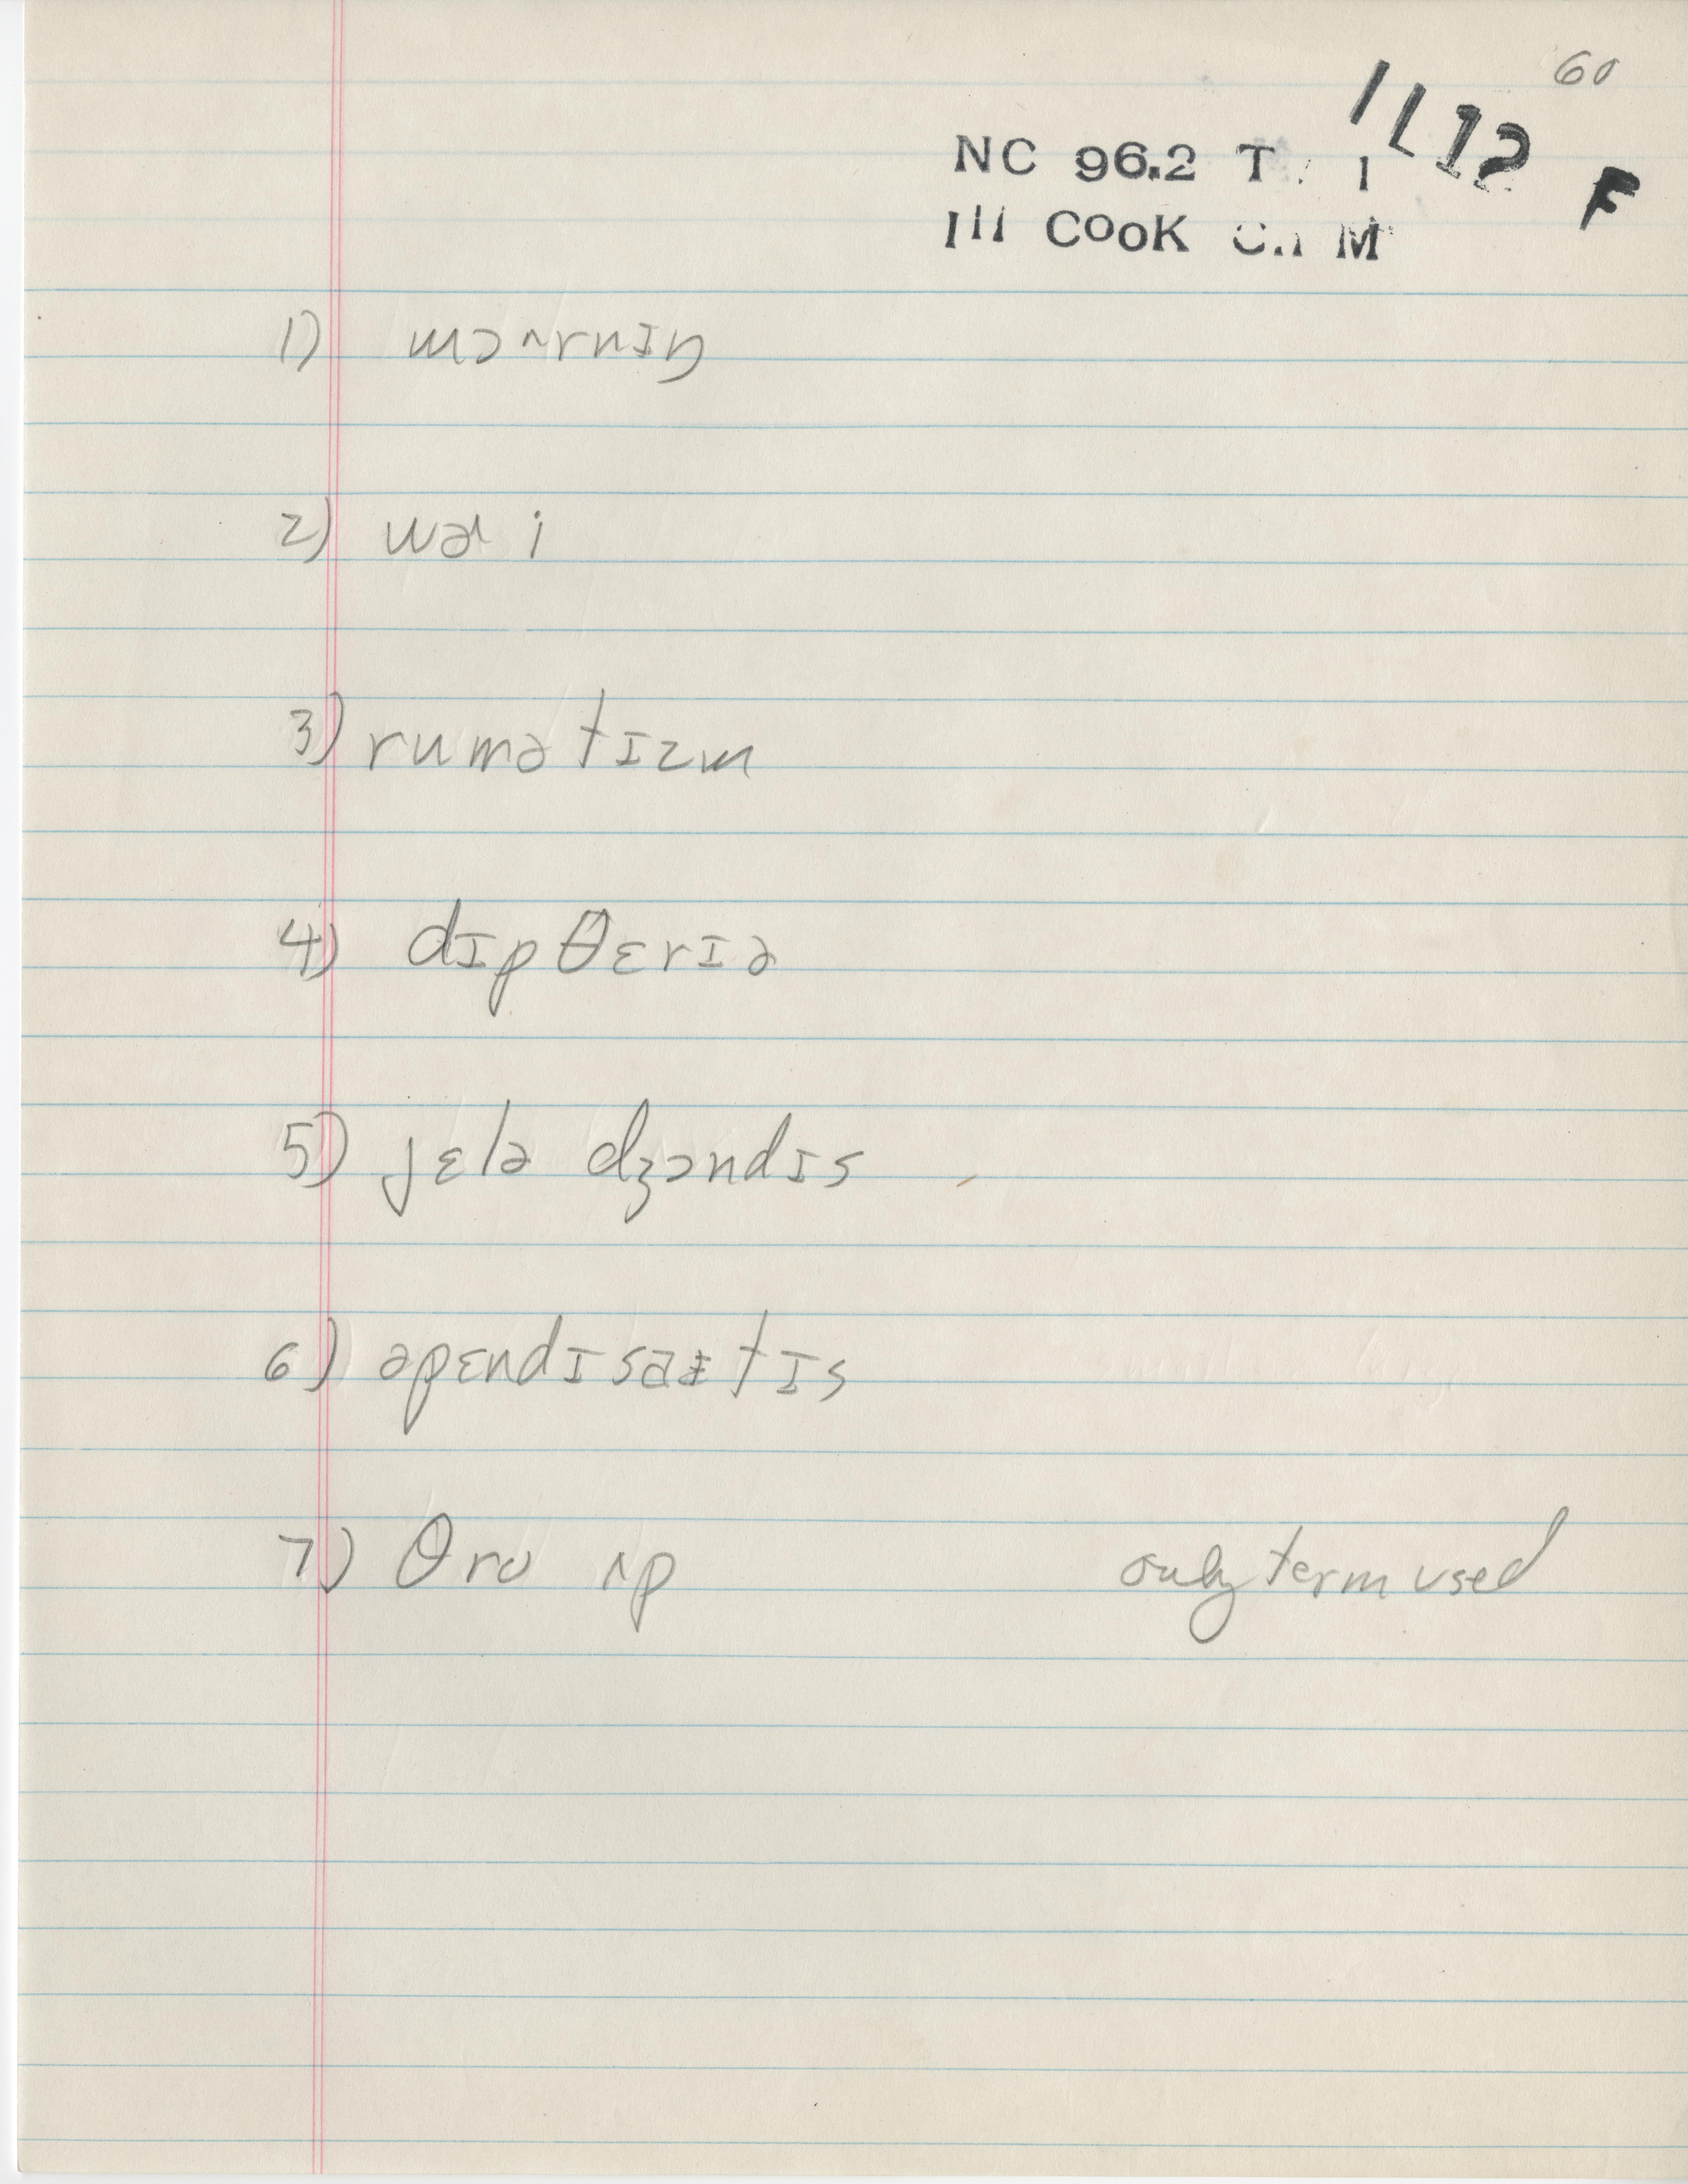 60
IL12 F
NC 96.2 T I
Ill COOK M
1) mɔʌrnɪŋ
2) wəɹ i
3) rumətɪzm
4) dɪpθɛrɪə
5) jɛlə dʒɔndɪs
6) əpɛndɪsaɪtɪs
7) θrʊ ʌp only term used